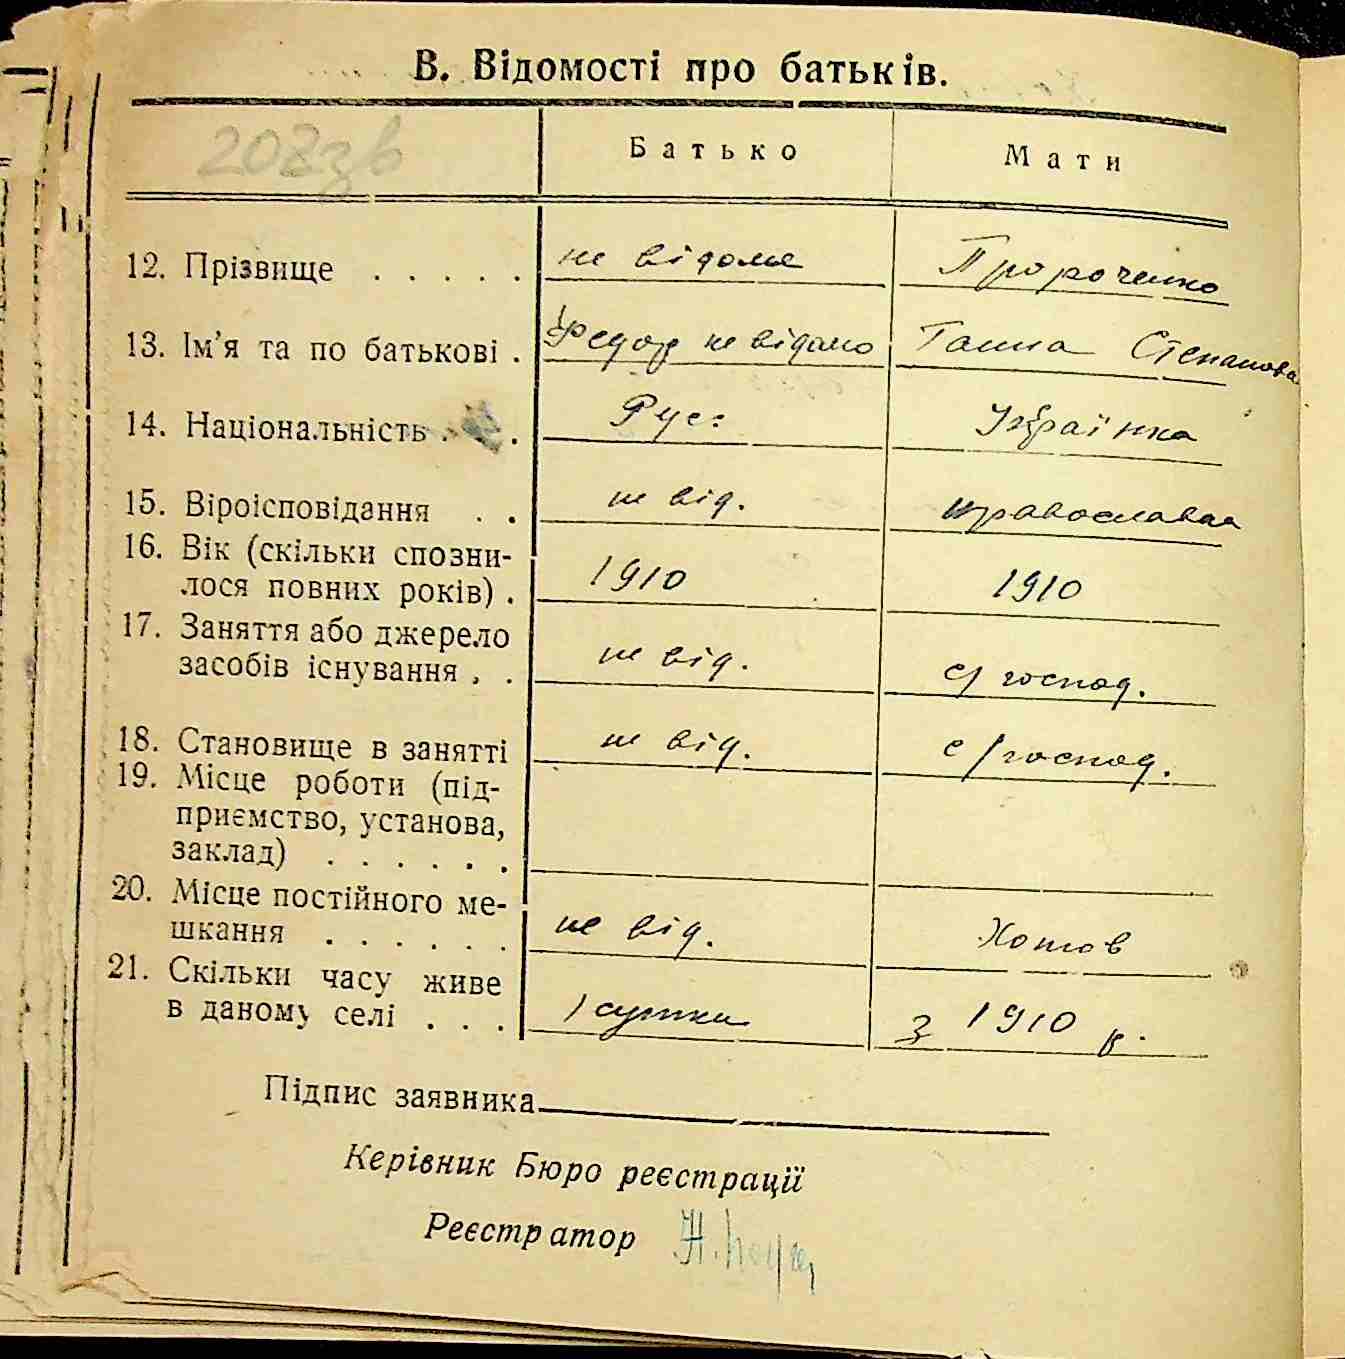 В. Відомості про батьків.
208зв
Батько Мати
12. Прізвище . . . . . не відоме Пророченко
13. Ім'я та по батькові . Федор не відомо Ганна Степанова
14. Національність . . . Рус: Українка
15. Віроісповідання . . не від. православна
16. Вік (скільки спозни-
лося повних років) . 1910 1910
17. Заняття або джерело
засобів існування . . не від. с/господ.
18. Становище в занятті не від. с/господ.
19. Місце роботи (під-
приємство, установа,
заклад) . . . . . .
20. Місце постійного ме-
шкання . . . . . . не від. Хотов
21. Скільки часу живе
в даному селі . . . 1 сутки з 1910 р.
Підпис заявника
Керівник Бюро реєстрації
Реєстратор